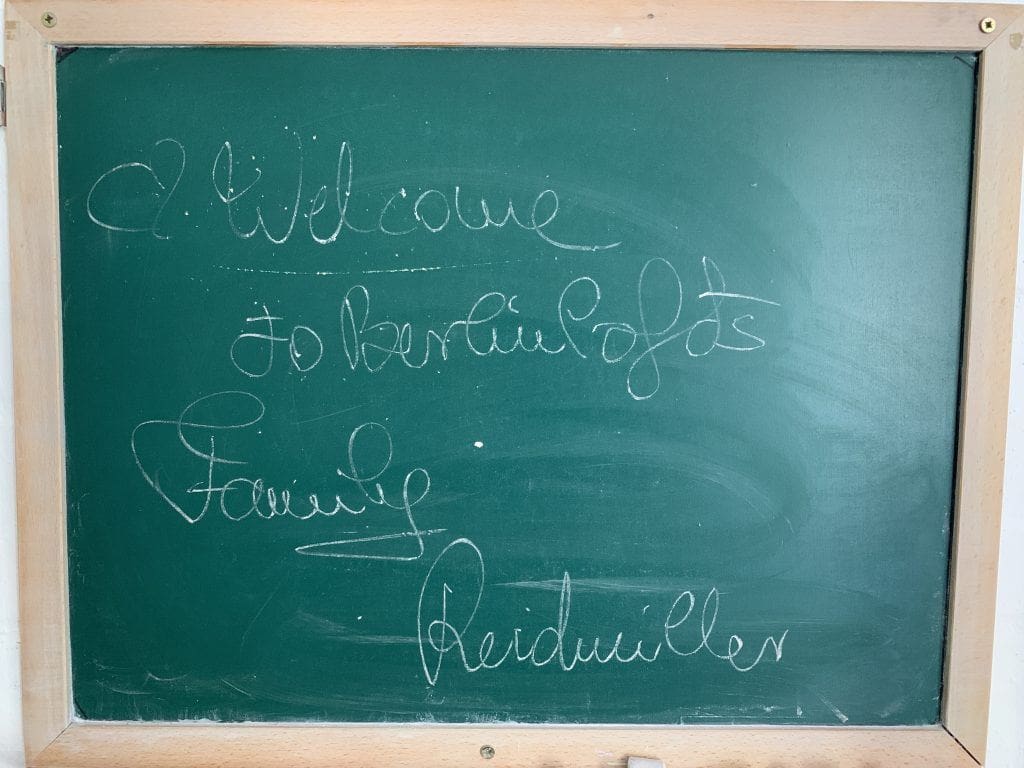 Welcome
to Berlin Lofts
Family
Reidmiller